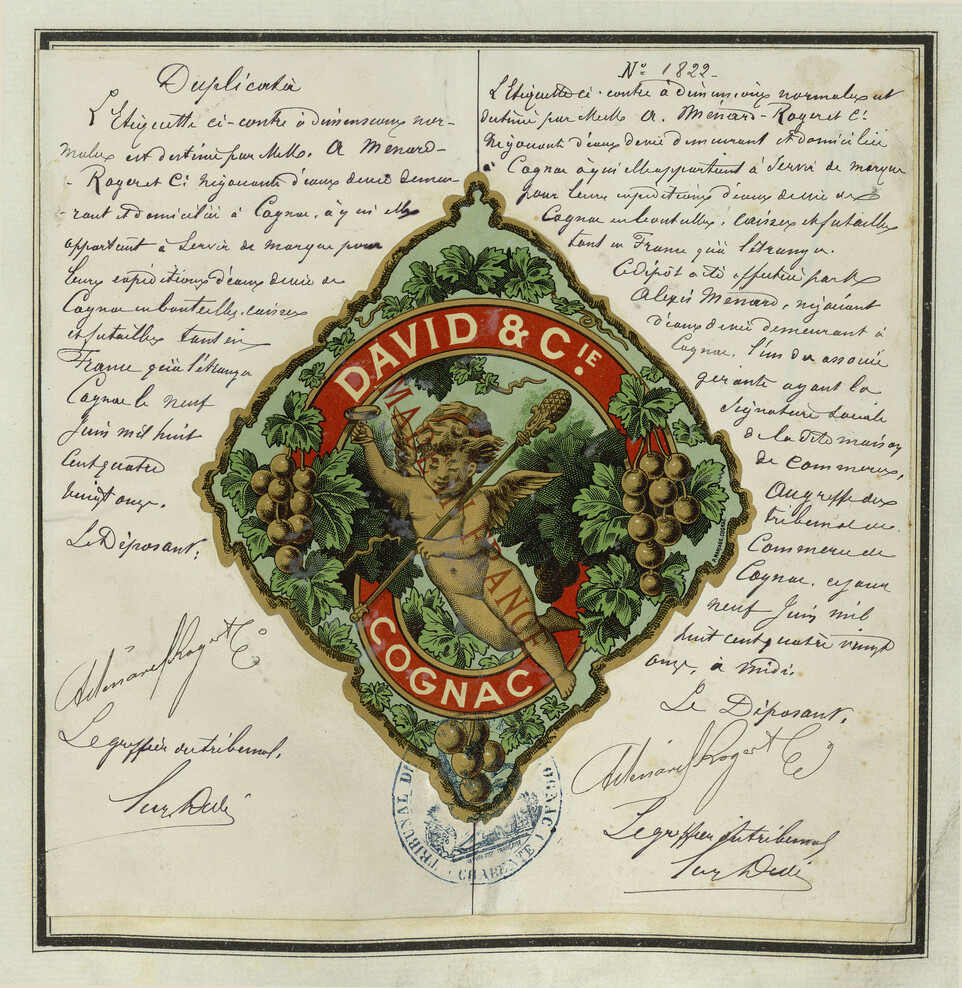 Duplicata
L'Etiquette ci-contre à dimensions nor-
males est destiné par MMrs. A Menard-
- Royer et Cie négociants d'eaux de vie demeu-
-rant et domiciliés à Cognac, à qui elle
appartient à servir de marque pour
leurs expéditions d'eaux de vie de
Cognac en bouteilles, caisses
et futailles tant en
France qu'à l'étranger
Cognac le neuf
Juin mil huit
cent quatre
vingt onze.
Le Déposant,
A Menard Royer et Cie
Le greffier du tribunal,
No 1822-
L'Etiquette ci-contre à dimensions normales est
destiné par MMrs A. Ménard-Royer et Cie
négociants d'eaux de vie demeurant et domiciliés
à Cognac à qui elle appartient à servir de marque
pour leurs expéditions d'eaux de vie de
Cognac en bouteilles, caisses et futailles
tant en France qu'à l'étranger.
Ce dépôt a été effectué par
Alexis Ménard, négociant
d'eaux de vie demeurant à
Cognac, l'un des associés
gérants ayant la
signature sociale
de la dite maison
de commerce,
Au greffe du
tribunal de
Commerce de
Cognac, ce jour
neuf Juin mil
huit cent quatre vingt
onze, à midi.
Le Déposant,
A Menard Royer et Cie
Le greffier du tribunal
DAVID & CIE.
MADE IN FRANCE
COGNAC
TRIBUNAL DE COGNAC
CHARENTE